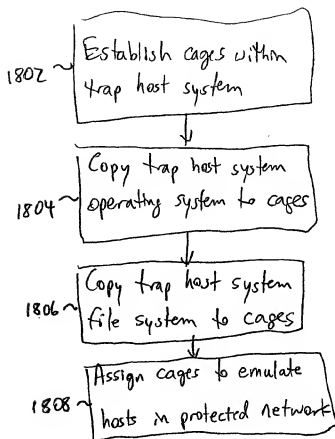 1802
Establish cages within
trap host system
1804
Copy trap host system
operating system to cages
1806
Copy trap host system
file system to cages
1808
Assign cages to emulate
hosts in protected network